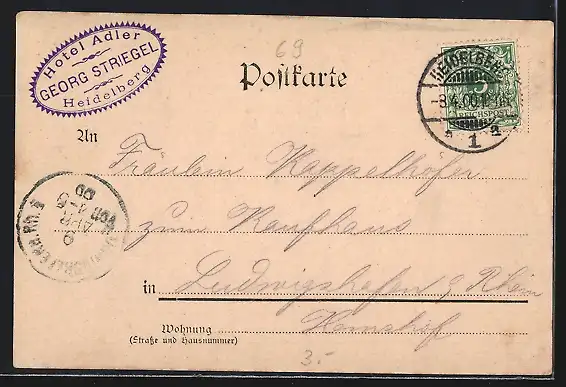 Hotel Adler
GEORG STRIEGEL
Heidelberg
69
Postkarte
HEIDELBERG
5
REICHSPOST
-8.4.00.
* 1 a
An
Fräulein Keppelhöfer
zum Kaufhaus
in Ludwigshafen a/Rhein
Hemshof
Wohnung
(Straße und Hausnummer)
VON
9
APR
00
3.-